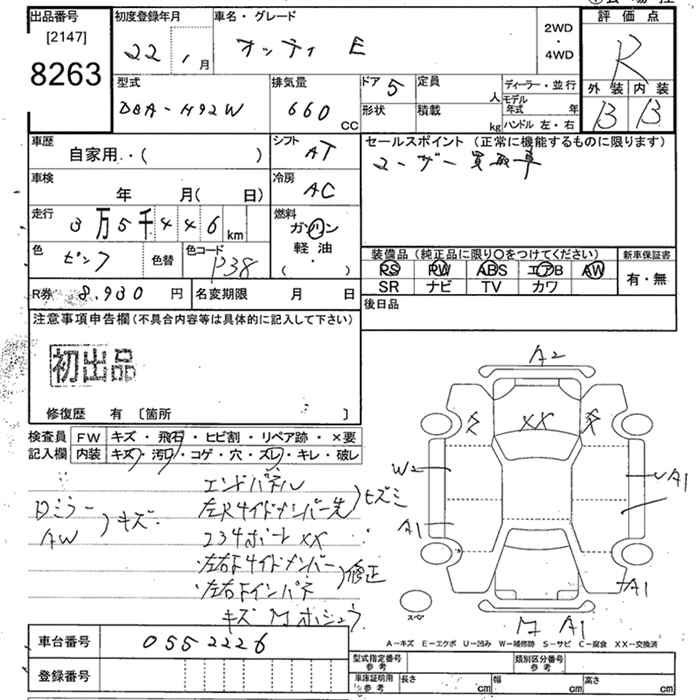 出品番号
[2147]
8263
初度登録年月
22 , 月
車名・グレード
オッティ E
2WD
・
4WD
評価点
R
外装 内装
B B
型式
DBA-H92W
排気量
660 CC
ドア 5
定員 人
形状
積載 kg
ディーラー・並行
モデル年式 年
ハンドル 左・右
車歴
自家用・・( )
シフト
AT
セールスポイント (正常に機能するものに限ります)
ユーザー買取車
車検
年 月( 日)
冷房
AC
走行
3万5千446 km
燃料
ガソリン
軽油
( ・ )
色
ピンク
色替
色コード
P38
装備品 (純正品に限り○をつけてください)
新車保証書
PS PW ABS エアB AW
有・無
SR ナビ TV カワ
R券 8,930 円
名変期限 月 日
後日品
注意事項申告欄 (不具合内容等は具体的に記入して下さい)
初出品
修復歴 有 [箇所 ]
検査員記入欄
FW キズ・飛石・ヒビ割・リペア跡・×要
内装 キズ・汚レ・コゲ・穴・ズレ・キレ・破レ
エンドパネル
左Rサイドメンバー先
ヒズミ
ミラー
AW
キズ
234ボート XX
左右Fサイドメンバー
左右Fインパネ
修正
A2
XX
W2
A1
A1
A1
スペア
A1
A-キズ E-エクボ U-凹み W-補修跡 S-サビ C-腐食 XX-交換済
車台番号
0552226
登録番号
型式指定番号
参考
類別区分番号
参考
車庫証明用
参考
長さ cm
幅 cm
高さ cm